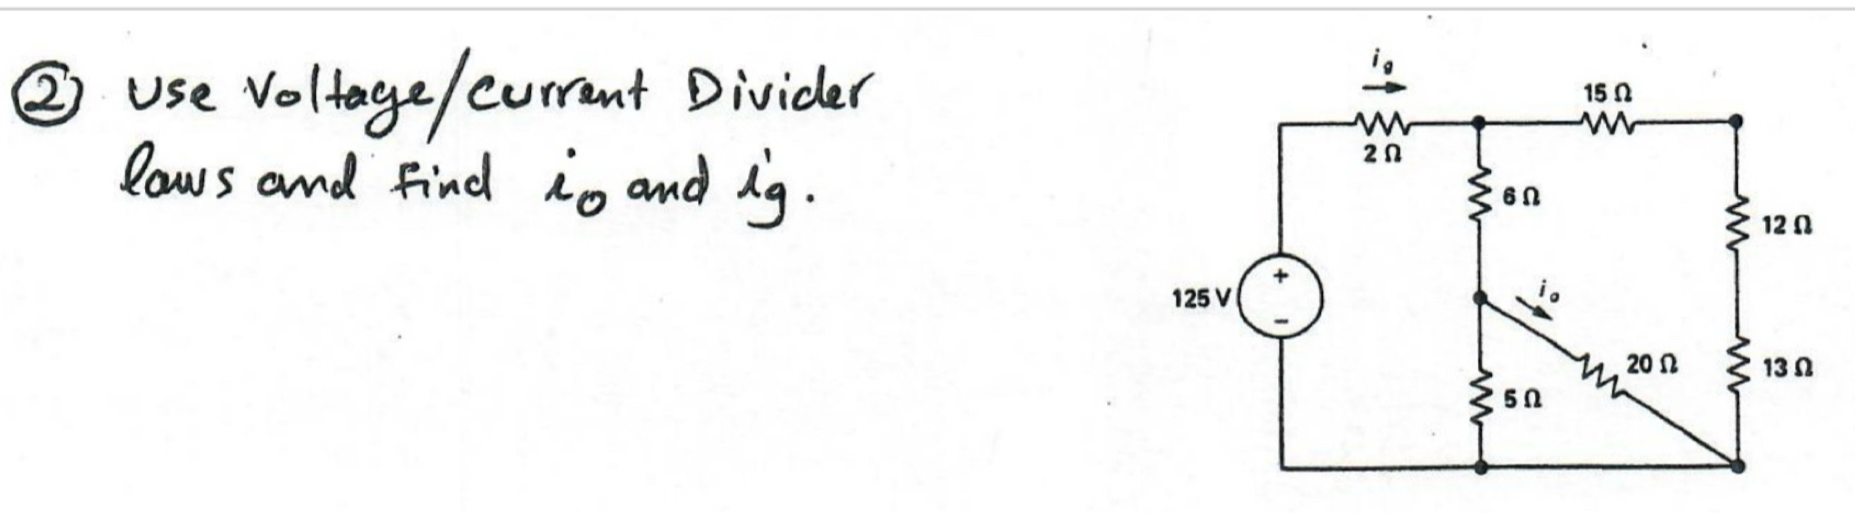 ② Use Voltage/Current Divider
laws and find io and ig.
ig
2 Ω
15 Ω
6 Ω
12 Ω
125 V
+
−
io
20 Ω
13 Ω
5 Ω